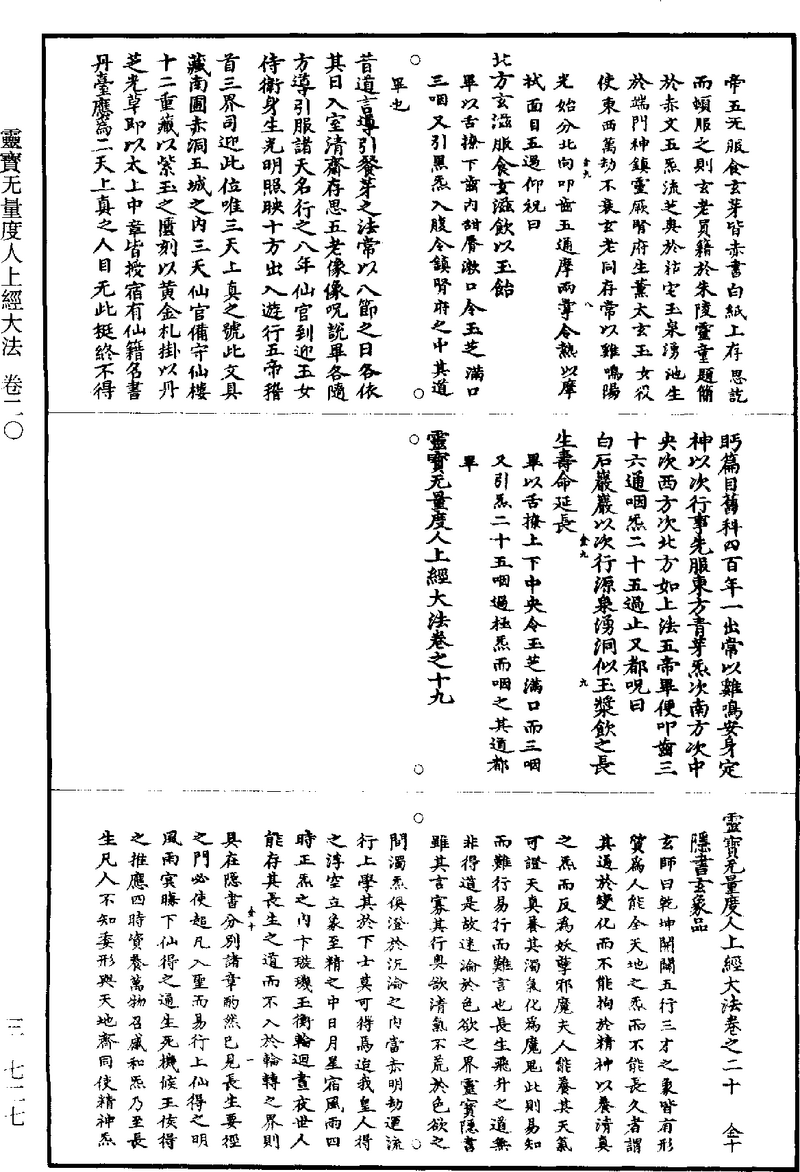 帝五炁服食玄芽皆赤書白紙上存思訖
而頓服之則玄老員籍於朱陵靈童題簡
於赤文五炁流芝奥於祜宅玉泉湧池生
於端門神鎮靈厥腎府生薰太玄玉女役
使東西萬劫不衰玄老同存常以雞鳴陽
光始分北向叩齒五通摩兩掌令熱以摩
拭面目五過仰祝曰
北方玄滋服食玄滋飲以玉飴
畢以舌撩下齒内甜脣漱口令玉芝滿口
三咽又引黑炁入腹令鎮腎府之中其道
畢也
昔道言導引餐芽之法常以八節之日各依
其日入室清齋存思五老像像呪說畢各隨
方導引服諸天名行之八年仙官到迎玉女
侍衛身生光明照映十方出入遊行五帝稽
首三界司迎此位唯三天上真之號此文具
藏南圃赤洞五城之内三天仙官備守仙樓
十二重藏以紫玉之匱刻以黄金札掛以丹
芝光草即以太上中章皆授宿有仙籍名書
丹臺應爲二天上真之人目无此挺終不得
眄篇目舊科四百年一出常以雞鳴安身定
神以次行事先服東方青芽炁次南方次中
央次西方次北方如上法五帝畢便叩齒三
十六通咽炁二十五過止又都呪曰
白石巖巖以次行源泉湧洞似玉漿飲之長
生壽命延長
畢以舌撩上下中央令玉芝滿口而三咽
又引炁二十五咽過極炁而咽之其道都
畢
靈寶无量度人上經大法卷之十九
靈寶无量度人上經大法卷之二十 全十
隱書玄象品
玄師曰乾坤開闢五行三才之象皆有形
質爲人能全天地之炁而不能長久者謂
其通於變化而不能拘於精神以養清真
之炁而反爲妖孽邪魔夫人能養其天氣
可證天真養其濁氣化爲魔鬼此則易知
而難行易行而難言也長生飛升之道無
非得道是故迷淪於色欲之界靈寶隱書
雖其言寡其行奥欲清氣不荒於色欲之
間濁炁俟澄於沉淪之内當赤明劫運流
行上學其於下士莫可得焉迨我皇人得
之浮空立象至精之中日月星宿風雨四
時正炁之内卞璇璣玉衡輪迴晝夜世人
能存其長生之道而不入於輪轉之界則
具在隱書分別諸章酌然已見長生要徑
之門必使超凡入聖而易行上仙得之明
風雨賓勝下仙得之通生死機候王侯得
之推應四時資養萬物召感和炁乃至長
生凡人不知委形與天地齋同使精神炁
靈寶无量度人上經大法 卷二〇
三—七二七